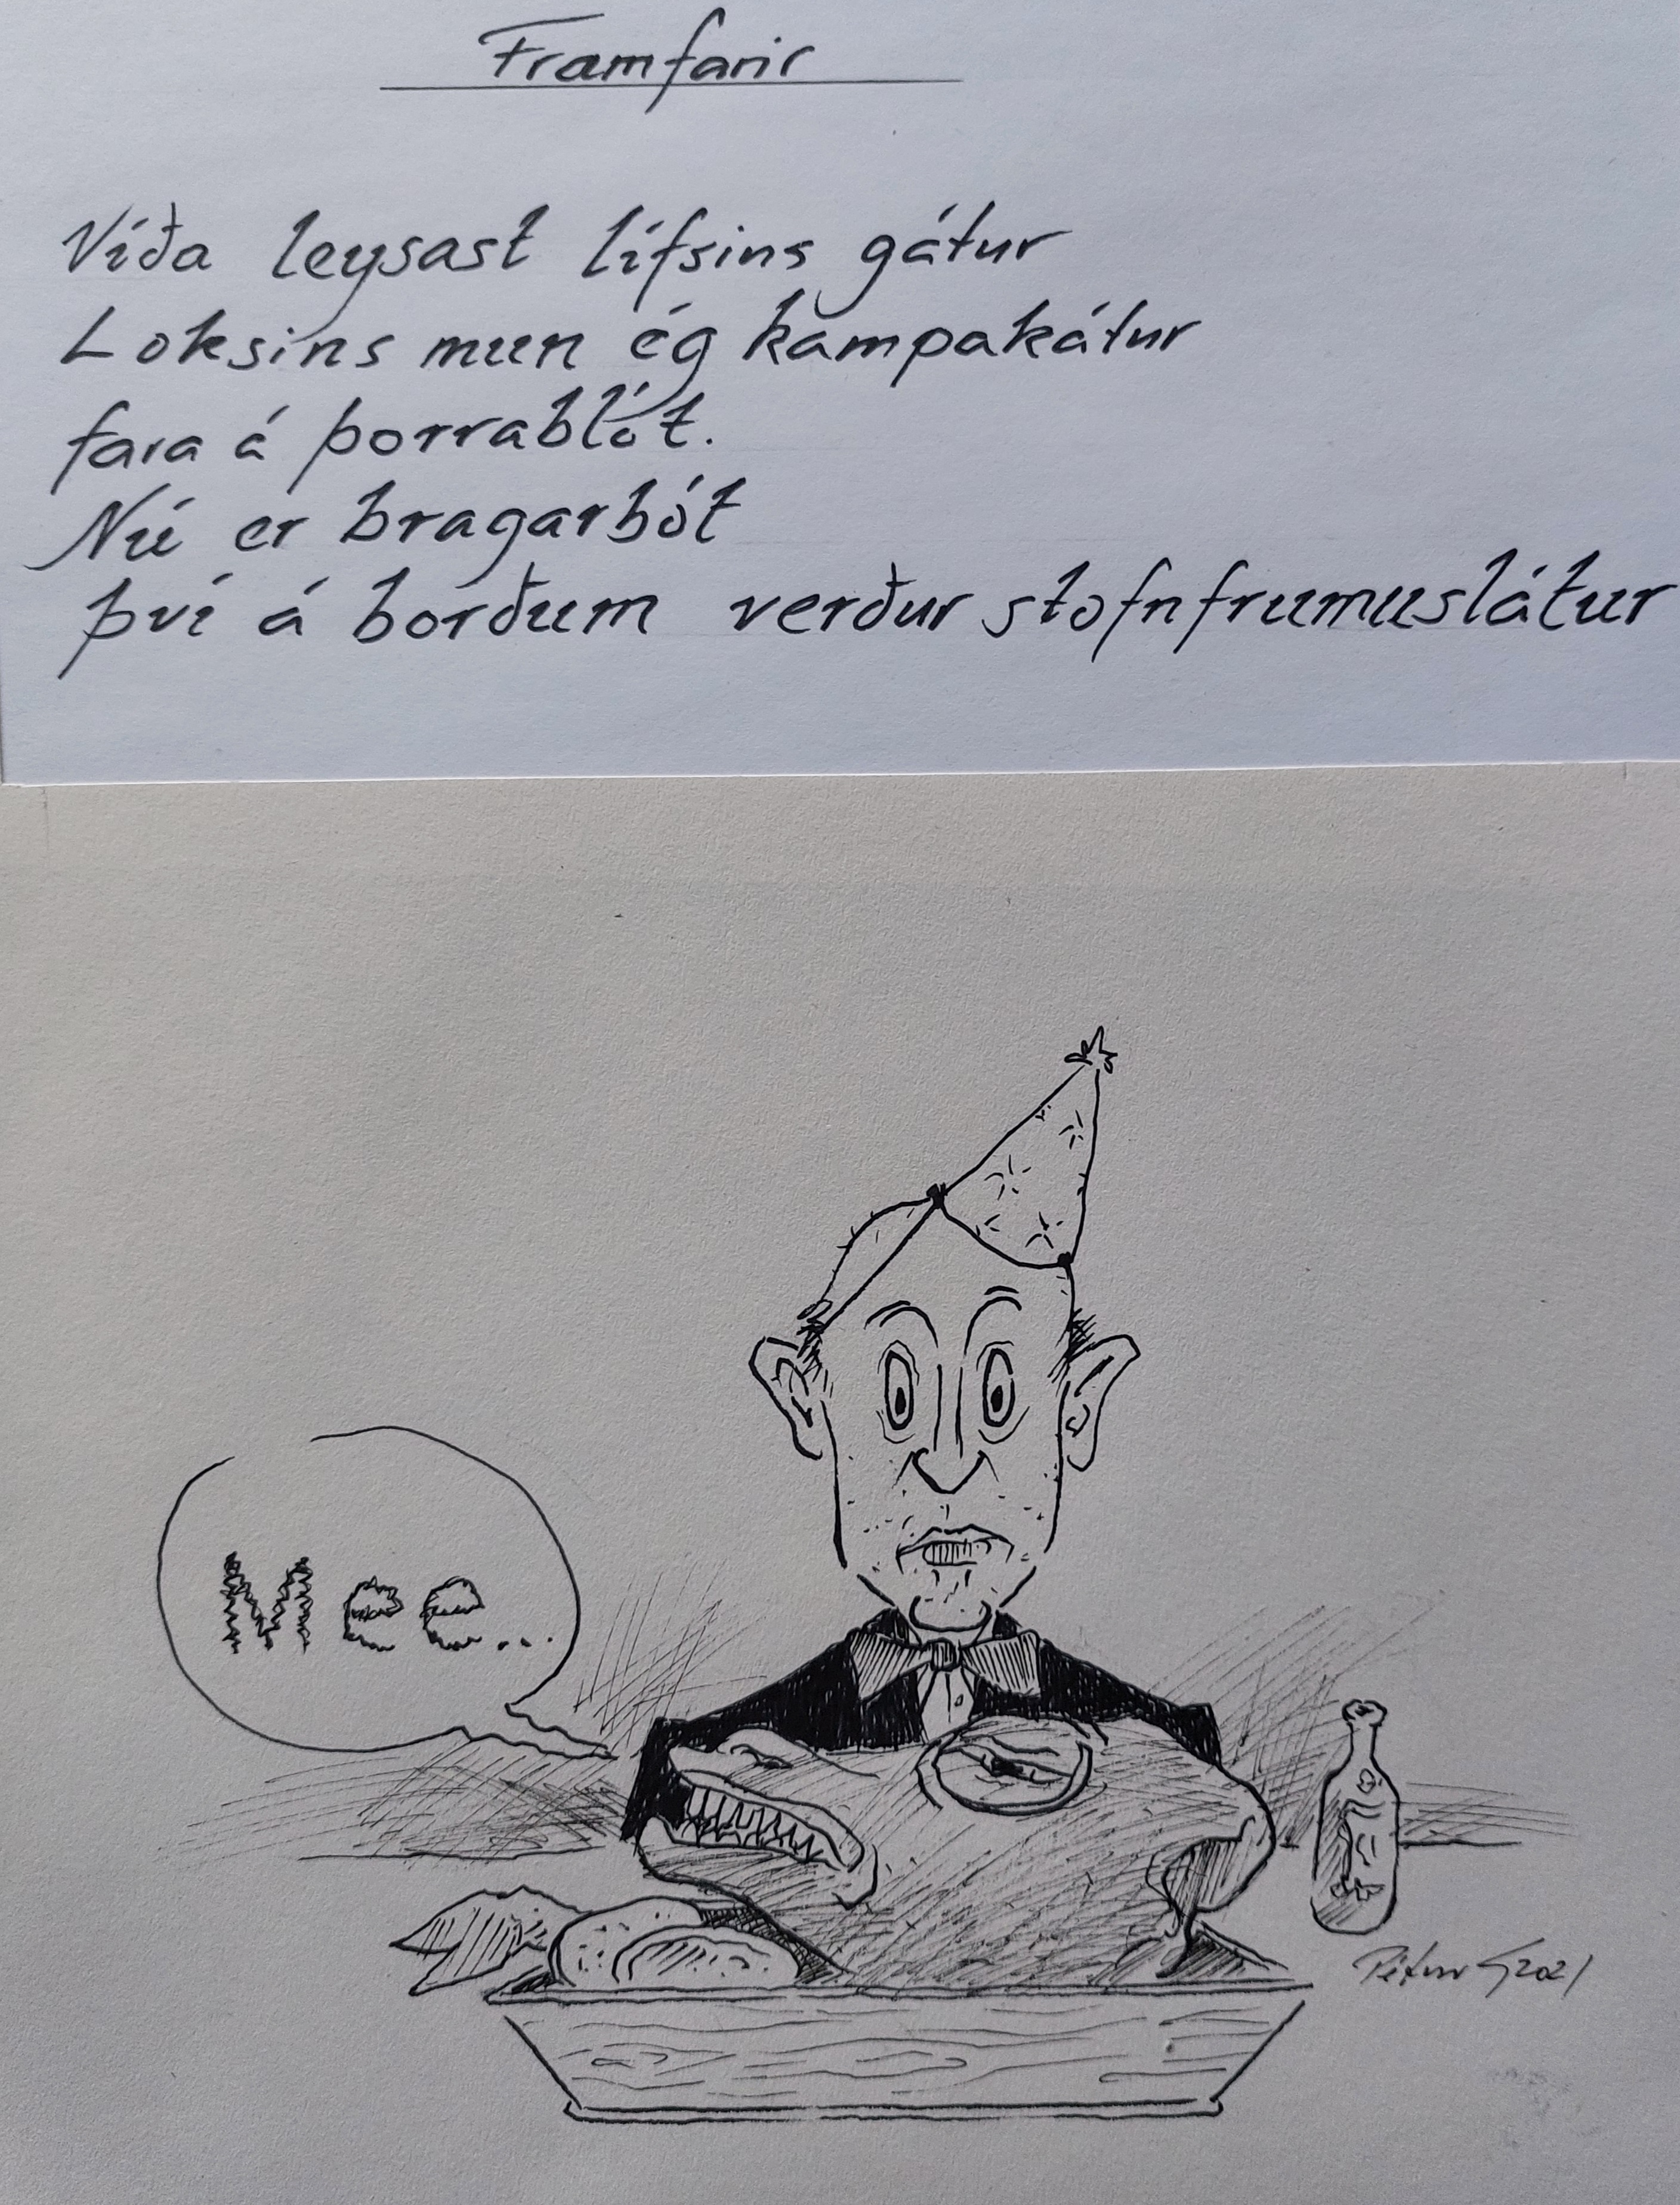 Framfarir
Víða leysast lífsins gátur
Loksins mun ég kampakátur
fara á þorrablót.
Nú er bragarbót
því á borðum verður stofnfrumuslátur
Mee...
Pétur G 2021